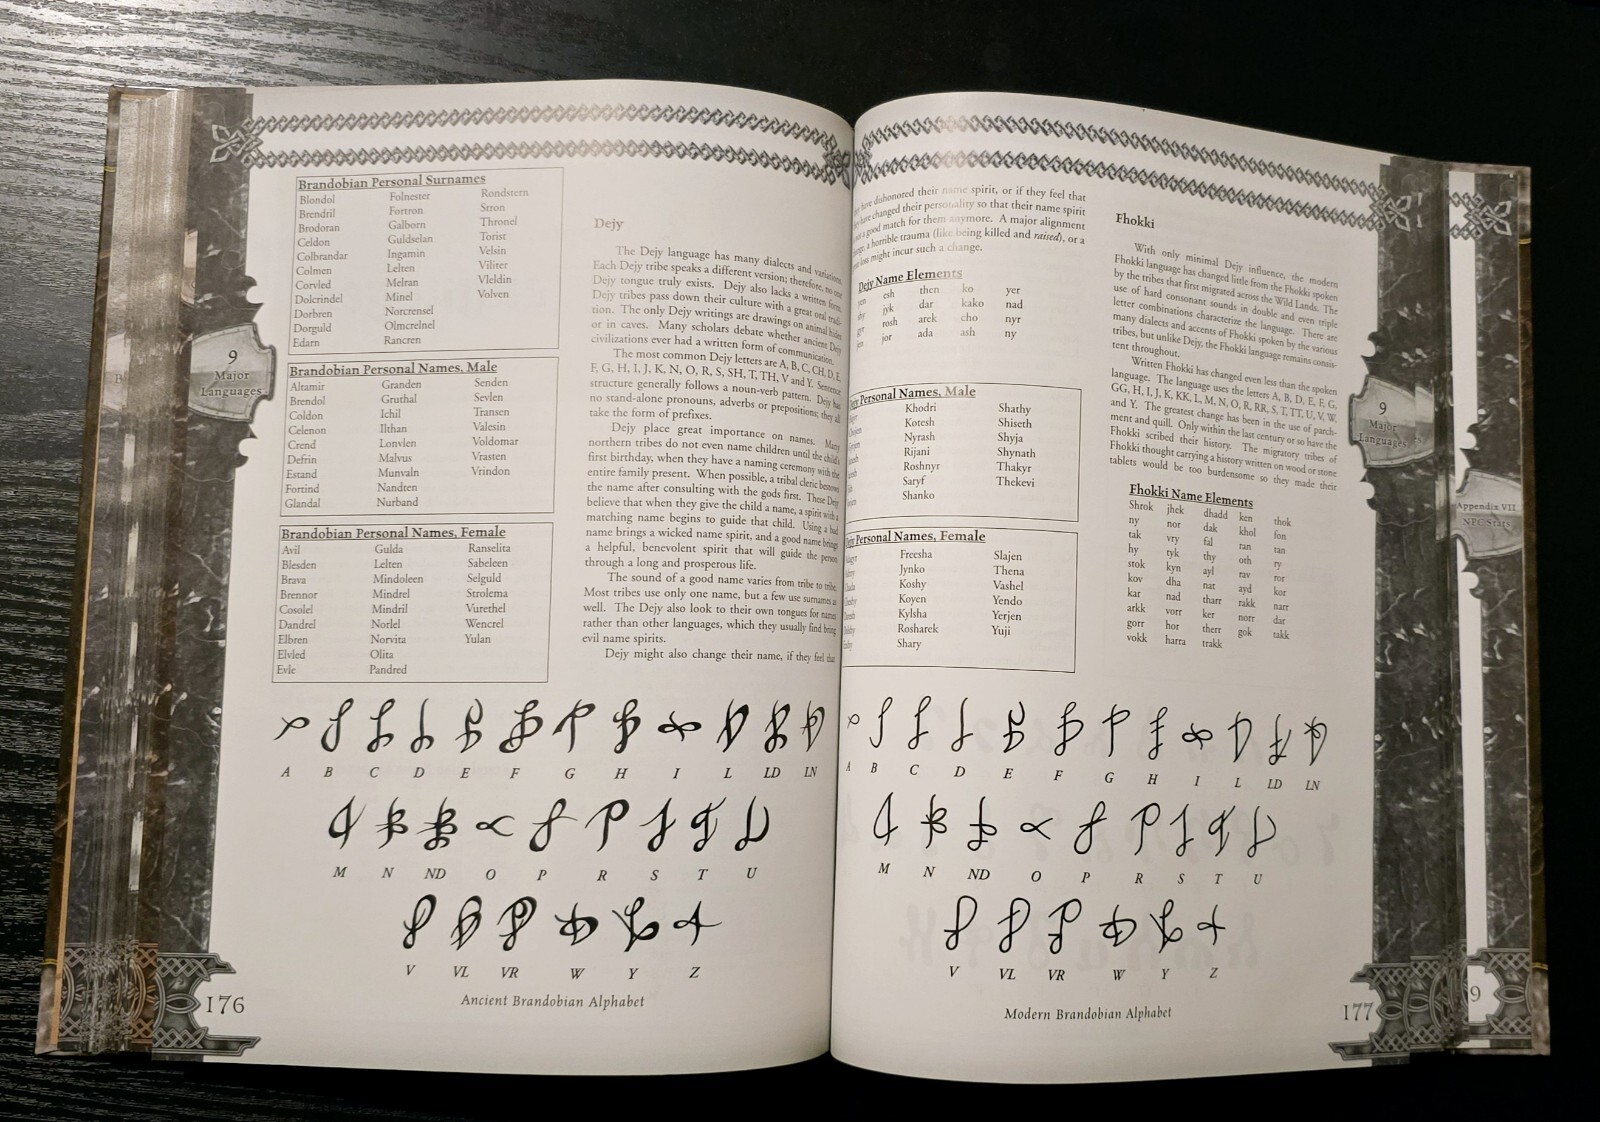 Brandobian Personal Surnames
Blondol Folnester Rondstern
Brendril Fortron Stron
Brodoran Galborn Thronel
Celdon Guldselan Torist
Colbrandar Ingamin Velsin
Colmen Lelten Viliter
Corvled Melran Vleldin
Dolcrindel Minel Volven
Dorbren Norcrensel
Dorguld Olmcrelnel
Edarn Rancren
Brandobian Personal Names, Male
Altamir Granden Senden
Brendol Gruthal Sevlen
Coldon Ichil Transen
Celenon Ilthan Valesin
Crend Lonvlen Voldomar
Defrin Malvus Vrasten
Estand Munvaln Vrindon
Fortind Nandten
Glandal Nurband
Brandobian Personal Names, Female
Avil Gulda Ranselita
Blesden Lelten Sabeleen
Brava Mindoleen Selguld
Brennor Mindrel Strolema
Cosolel Mindril Vurethel
Dandrel Norlel Wencrel
Elbren Norvita Yulan
Elvled Olita
Evle Pandred
9
Major
Languages
Dejy
The Dejy language has many dialects and variations.
Each Dejy tribe speaks a different version; therefore, no one
Dejy tongue truly exists. Dejy also lacks a written form.
Dejy tribes pass down their culture with a great oral tradi-
tion. The only Dejy writings are drawings on animal hides
or in caves. Many scholars debate whether ancient Dejy
civilizations ever had a written form of communication.
The most common Dejy letters are A, B, C, CH, D, E,
F, G, H, I, J, K, N, O, R, S, SH, T, TH, V and Y. Sentence
structure generally follows a noun-verb pattern. Dejy has
no stand-alone pronouns, adverbs or prepositions; they all
take the form of prefixes.
Dejy place great importance on names. Many
northern tribes do not even name children until the child's
first birthday, when they have a naming ceremony with the
entire family present. When possible, a tribal cleric bestows
the name after consulting with the gods first. These Dejy
believe that when they give the child a name, a spirit with a
matching name begins to guide that child. Using a bad
name brings a wicked name spirit, and a good name brings
a helpful, benevolent spirit that will guide the person
through a long and prosperous life.
The sound of a good name varies from tribe to tribe.
Most tribes use only one name, but a few use surnames as
well. The Dejy also look to their own tongues for names
rather than other languages, which they usually find bring
evil name spirits.
Dejy might also change their name, if they feel that
A B C D E F G H I L LD LN
M N ND O P R S T U
V VL VR W Y Z
Ancient Brandobian Alphabet
176
have dishonored their name spirit, or if they feel that
have changed their personality so that their name spirit
not a good match for them anymore. A major alignment
a horrible trauma (like being killed and raised), or a
loss might incur such a change.
Dejy Name Elements
esh then ko yer
jyk dar kako nad
rosh arek cho nyr
jor ada ash ny
Personal Names, Male
Khodri Shathy
Kotesh Shiseth
Nyrash Shyja
Rijani Shynath
Roshnyr Thakyr
Saryf Thekevi
Shanko
Personal Names, Female
Freesha Slajen
Jynko Thena
Koshy Vashel
Koyen Yendo
Kylsha Yerjen
Rosharek Yuji
Shary
Fhokki
With only minimal Dejy influence, the modern
Fhokki language has changed little from the Fhokki spoken
by the tribes that first migrated across the Wild Lands. The
use of hard consonant sounds in double and even triple
letter combinations characterize the language. There are
many dialects and accents of Fhokki spoken by the various
tribes, but unlike Dejy, the Fhokki language remains consis-
tent throughout.
Written Fhokki has changed even less than the spoken
language. The language uses the letters A, B, D, E, F, G,
GG, H, I, J, K, KK, L, M, N, O, R, RR, S, T, TT, U, V, W,
and Y. The greatest change has been in the use of parch-
ment and quill. Only within the last century or so have the
Fhokki scribed their history. The migratory tribes of
Fhokki thought carrying a history written on wood or stone
tablets would be too burdensome so they made their
Fhokki Name Elements
Shrok jhek dhadd ken thok
ny nor dak khol fon
tak vry fal ran tan
hy tyk thy oth ry
stok kyn ayl rav ror
kov dha nat ayd kor
kar nad tharr rakk narr
arkk vorr ker norr dar
gorr hor therr gok takk
vokk harra trakk
A B C D E F G H I L LD LN
M N ND O P R S T U
V VL VR W Y Z
Modern Brandobian Alphabet
177
9
Major
Languages
Appendix VII
NPC Stats
9